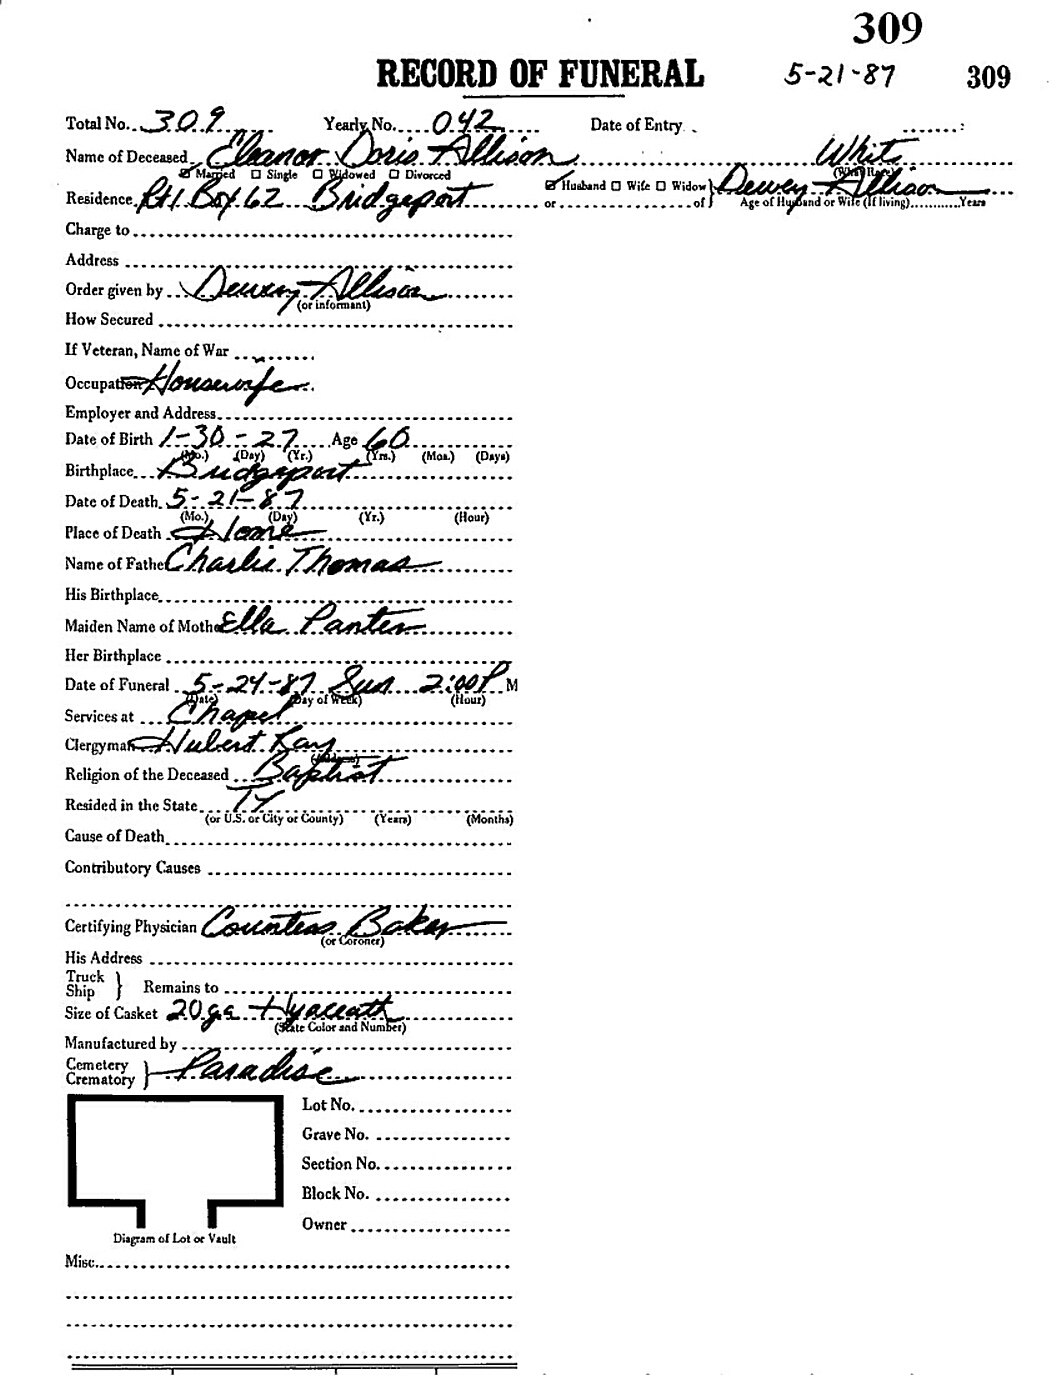 309
RECORD OF FUNERAL 5-21-87 309
Total No. 309 Yearly No. 042 Date of Entry
Name of Deceased Eleanor Doris Allison Whit
☑ Married ☐ Single ☐ Widowed ☐ Divorced (What Race)
Residence Rt 1 Box 62 Bridgeport ☑ Husband ☐ Wife ☐ Widow } Dewey Allison
or of Age of Husband or Wife (If living) Years
Charge to
Address
Order given by Dewey Allison
(or informant)
How Secured
If Veteran, Name of War
Occupation Housewife
Employer and Address
Date of Birth 1-30-27 Age 60
(Mo.) (Day) (Yr.) (Yrs.) (Mos.) (Days)
Birthplace Bridgeport
Date of Death 5-21-87
(Mo.) (Day) (Yr.) (Hour)
Place of Death Home
Name of Father Charlie Thomas
His Birthplace
Maiden Name of Mother Ella Panter
Her Birthplace
Date of Funeral 5-24-87 Sun 2:00 P M
(Date) (Day of Week) (Hour)
Services at Chapel
Clergyman Hubert Ray
(Address)
Religion of the Deceased Baptist
Resided in the State TX
(or U.S. or City or County) (Years) (Months)
Cause of Death
Contributory Causes
Certifying Physician Countess Baker
(or Coroner)
His Address
Truck
Ship } Remains to
Size of Casket 20ga Hyaceath
(State Color and Number)
Manufactured by
Cemetery
Crematory } Paradise
Lot No.
Grave No.
Section No.
Block No.
Owner
Diagram of Lot or Vault
Misc.